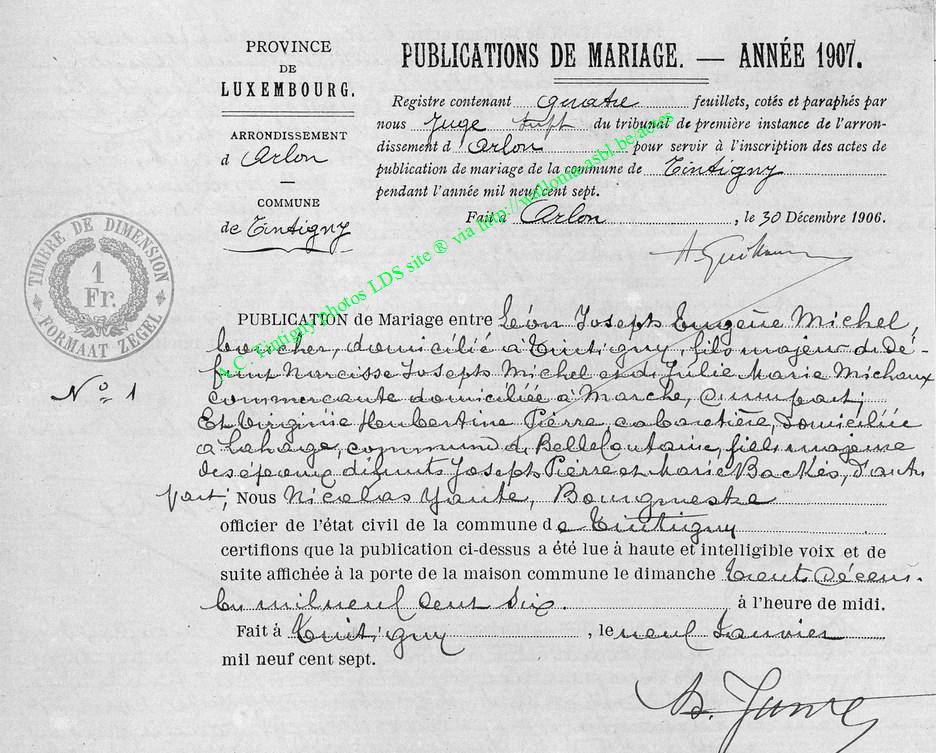 PROVINCE
DE
LUXEMBOURG.
ARRONDISSEMENT
d'Arlon
COMMUNE
de Tintigny
PUBLICATIONS DE MARIAGE. — ANNÉE 1907.
Registre contenant quatre feuillets, cotés et paraphés par
nous Juge du tribunal de première instance de l'arron-
dissement d'Arlon pour servir à l'inscription des actes de
publication de mariage de la commune de Tintigny
pendant l'année mil neuf cent sept.
Fait à Arlon, le 30 Décembre 1906.
TIMBRE DE DIMENSION
1
Fr.
FORMAAT ZEGEL
A.C. Tintigny photos LDS site ® via http://wallonia.asbl.be/actes
N° 1
PUBLICATION de Mariage entre Léon Joseph Eugène Michel,
boucher, domicilié à Tintigny, fils majeur de dé-
funt Narcisse Joseph Michel et de Julie Marie Michaux
commerçante domiciliée à Marche, d'une part;
Et Virginie Hubertine Pierre, cabaretière, domiciliée
à Lahage, commune de Bellefontaine, fille majeure
des époux défunts Joseph Pierre et Marie Backès, d'autre
part; Nous Nicolas Yante, Bourgmestre
officier de l'état civil de la commune de Tintigny
certifions que la publication ci-dessus a été lue à haute et intelligible voix et de
suite affichée à la porte de la maison commune le dimanche trente Décem-
bre mil neuf cent six. à l'heure de midi.
Fait à Tintigny, le neuf Janvier
mil neuf cent sept.